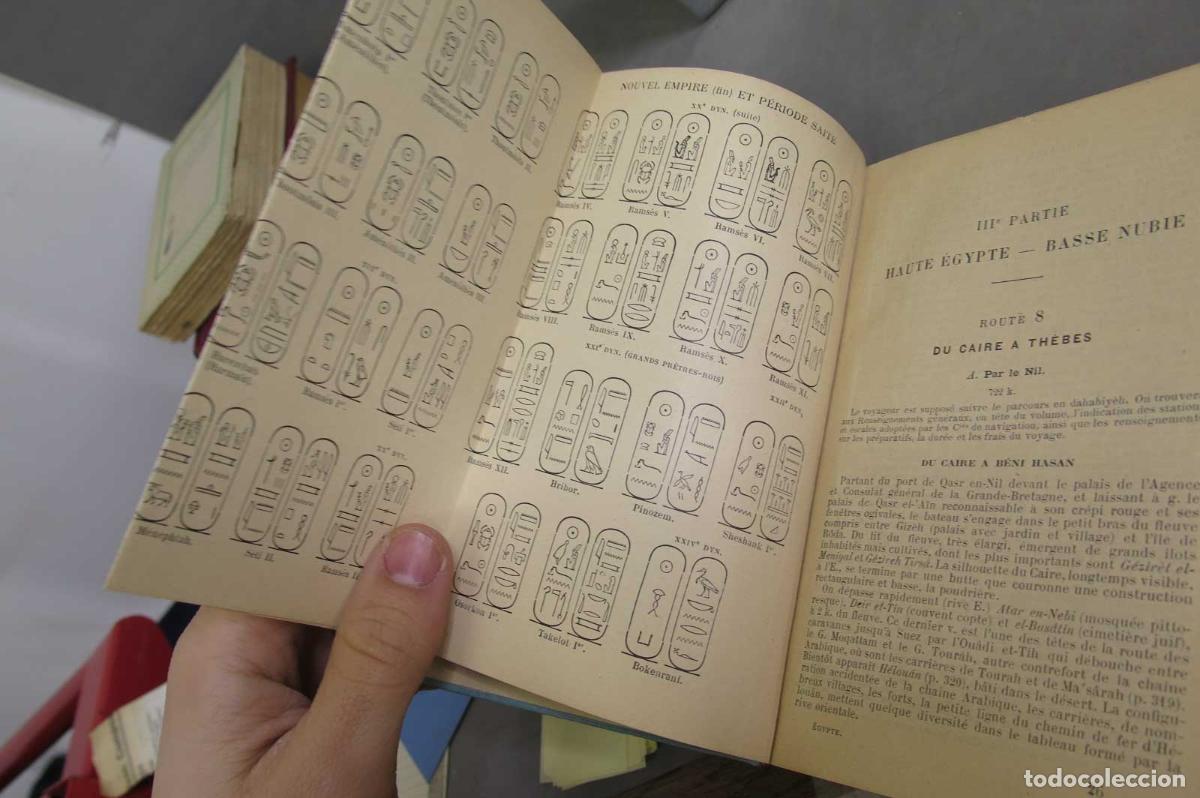 Aménôthès II.
Aménôthès III.
XIXᵉ DYN.
Ramsès Iᵉʳ.
Séti Iᵉʳ.
XXᵉ DYN.
Ménephtah.
Séti II.
NOUVEL EMPIRE (fin) ET PÉRIODE SAITE
XXᵉ DYN. (suite)
Ramsès IV.
Ramsès V.
Ramsès VI.
Ramsès VII.
Ramsès VIII.
Ramsès IX.
Ramsès X.
Ramsès XI.
XXIᵉ DYN. (GRANDS PRÊTRES-ROIS)
XXIIᵉ DYN.
Ramsès XII.
Hribor.
Pinozem.
Sheshank Iᵉʳ.
XXIVᵉ DYN.
Osorkon Iᵉʳ.
Takelot Iᵉʳ.
Bokenranf.
IIIᵉ PARTIE
HAUTE ÉGYPTE — BASSE NUBIE
ROUTE 8
DU CAIRE A THÈBES
A. Par le Nil.
722 k.
Le voyageur est supposé suivre le parcours en dahabiyèh. On trouvera
aux Renseignements généraux, en tête du volume, l'indication des station
et escales adoptées par les Cⁱᵉˢ de navigation, ainsi que les renseignement
sur les préparatifs, la durée et les frais du voyage.
DU CAIRE A BÉNI HASAN
Partant du port de Qasr en-Nil devant le palais de l'Agence
et Consulat général de la Grande-Bretagne, et laissant à g. le
palais de Qasr el-'Aïn reconnaissable à son crépi rouge et ses
fenêtres ogivales, le bateau s'engage dans le petit bras du fleuve
compris entre Gizeh (palais avec jardin et village) et l'île de
Rôda. Du lit du fleuve, très élargi, émergent de grands îlots
inhabités mais cultivés, dont les plus importants sont Géziret el-
Meniyal et Gézireh Tirsâ. La silhouette du Caire, longtemps visible,
à l'E., se termine par une butte que couronne une construction
rectangulaire et basse, la poudrière.
On dépasse rapidement (rive E.) Atar en-Nebi (mosquée pitto-
resque), Deir et-Tin (couvent copte) et el-Basâtîn (cimetière juif),
à 2 k. du fleuve. Ce dernier v. est l'une des têtes de la route des
caravanes jusqu'à Suez par l'Ouâdi et-Tih qui débouche entre
le G. Moqattam et le G. Tourah, autre contrefort de la chaîne
Arabique, où sont les carrières de Tourah et de Ma'sârah (p. 319).
Bientôt apparaît Hélouân (p. 320), bâti dans le désert. La configu-
ration accidentée de la chaîne Arabique, les carrières, de nom-
breux villages, les forts, la petite ligne du chemin de fer d'Hé-
louân, mettent quelque diversité dans le tableau formé par la
rive orientale.
ÉGYPTE.
26
todocoleccion